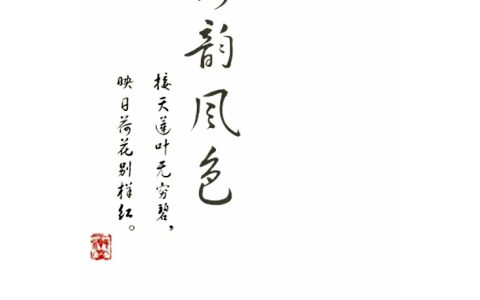 韵风色
接天莲叶无穷碧，
映日荷花别样红。